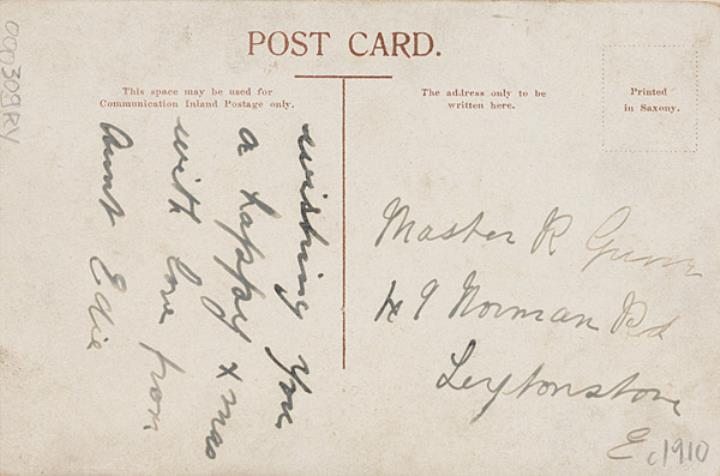 POST CARD.
This space may be used for
Communication Inland Postage only.
The address only to be
written here.
Printed
in Saxony.
wishing You
a happy xmas
with love from
Aunt Edie
Master R Gunn
49 Norman Rd
Leytonstone
E
c1910